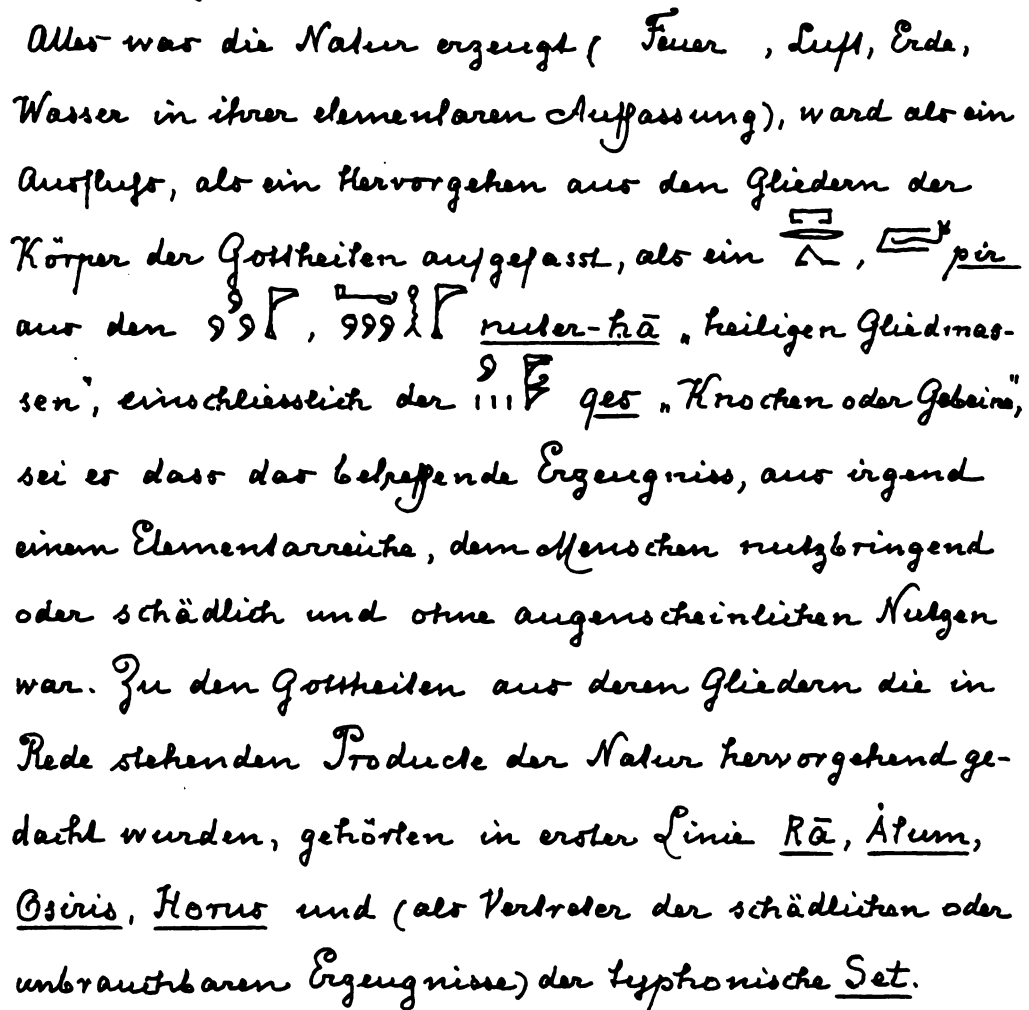 Alles was die Natur erzeugt ( Feuer , Luft, Erde,
Wasser in ihrer elementaren Auffassung), ward als ein
Ausfluss, als ein Hervorgehen aus den Gliedern der
Körper der Gottheiten aufgefasst, als ein , pir
aus den , nuter-hā „heiligen Gliedmas-
sen", einschliesslich der qes „Knochen oder Gebeine",
sei es dass das betreffende Erzeugniss, aus irgend
einem Elementarreiche, dem Menschen nutzbringend
oder schädlich und ohne augenscheinlichen Nutzen
war. Zu den Gottheiten aus deren Gliedern die in
Rede stehenden Producte der Natur hervorgehend ge-
dacht wurden, gehörten in erster Linie Rā, Ȧtum,
Osiris, Horus und (als Vertreter der schädlichen oder
unbrauchbaren Erzeugnisse) der typhonische Set.